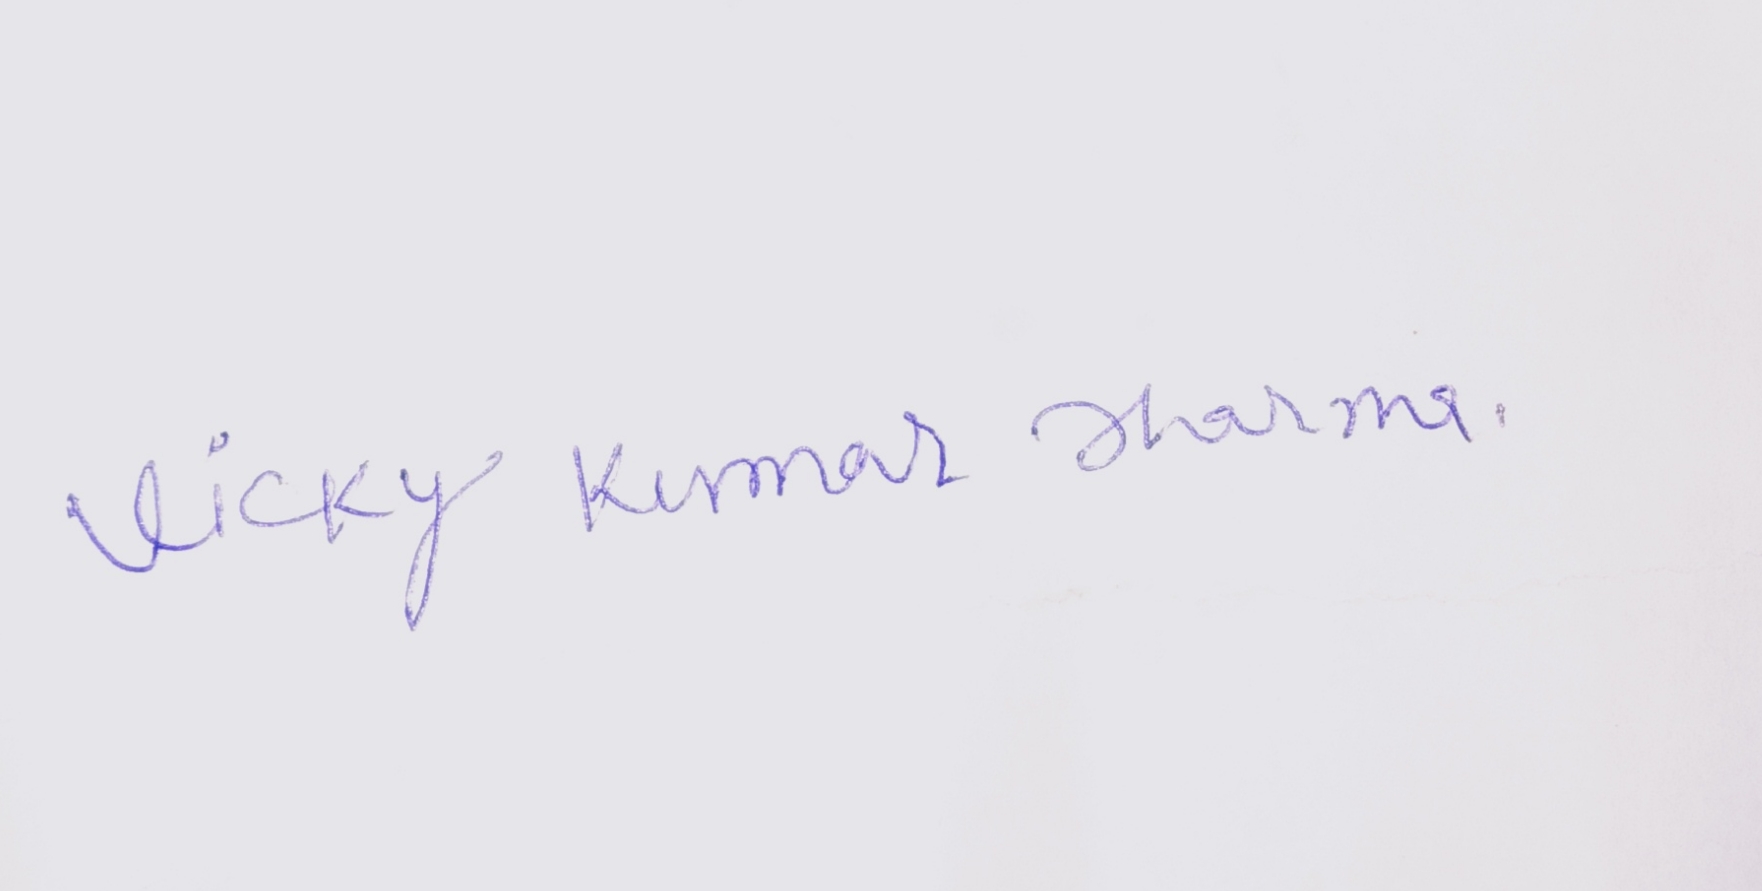 Vicky Kumar Sharma.